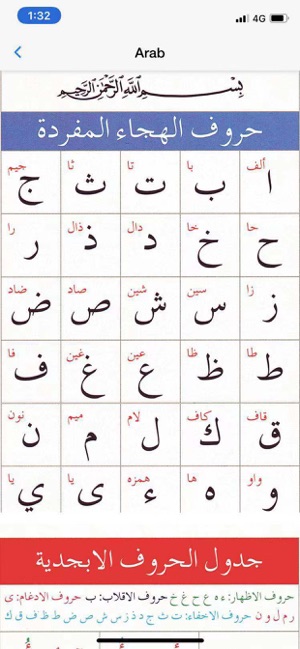 1:32
4G
Arab
بِسْمِ اللَّهِ الرَّحْمَٰنِ الرَّحِيمِ
حروف الهجاء المفردة
ألف با تا ثا جيم
ا ب ت ث ج
حا خا دال ذال را
ح خ د ذ ر
زا سين شين صاد ضاد
ز س ش ص ض
طا ظا عين غين فا
ط ظ ع غ ف
قاف كاف لام ميم نون
ق ك ل م ن
واو ها همزه يا يا
و ه ء ى ي
جدول الحروف الابجدية
حروف الاظهار: ء ه ع ح غ خ حروف الاقلاب: ب حروف الادغام: ى
ر م ل و ن حروف الاخفاء: ت ث ج د ذ ز س ش ص ض ط ظ ف ق ك